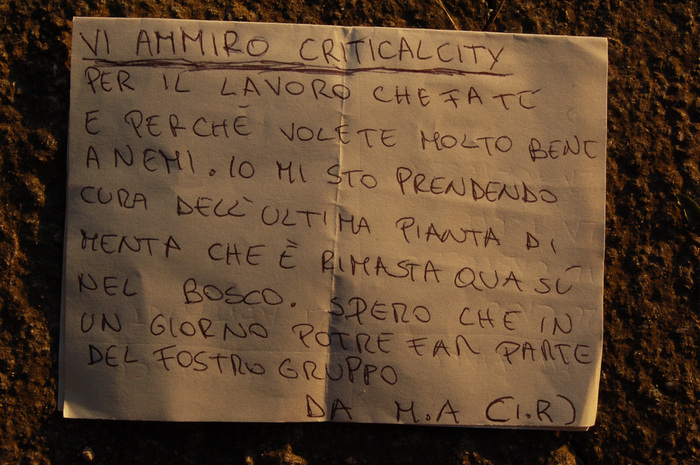 VI AMMIRO CRITICALCITY
PER IL LAVORO CHE FATE
E PERCHÉ VOLETE MOLTO BENE
A NEMI. IO MI STO PRENDENDO
CURA DELL'ULTIMA PIANTA DI
MENTA CHE È RIMASTA QUA SÙ
NEL BOSCO. SPERO CHE IN
UN GIORNO POTRE FAR PARTE
DEL FOSTRO GRUPPO
DA M.A (I.R)